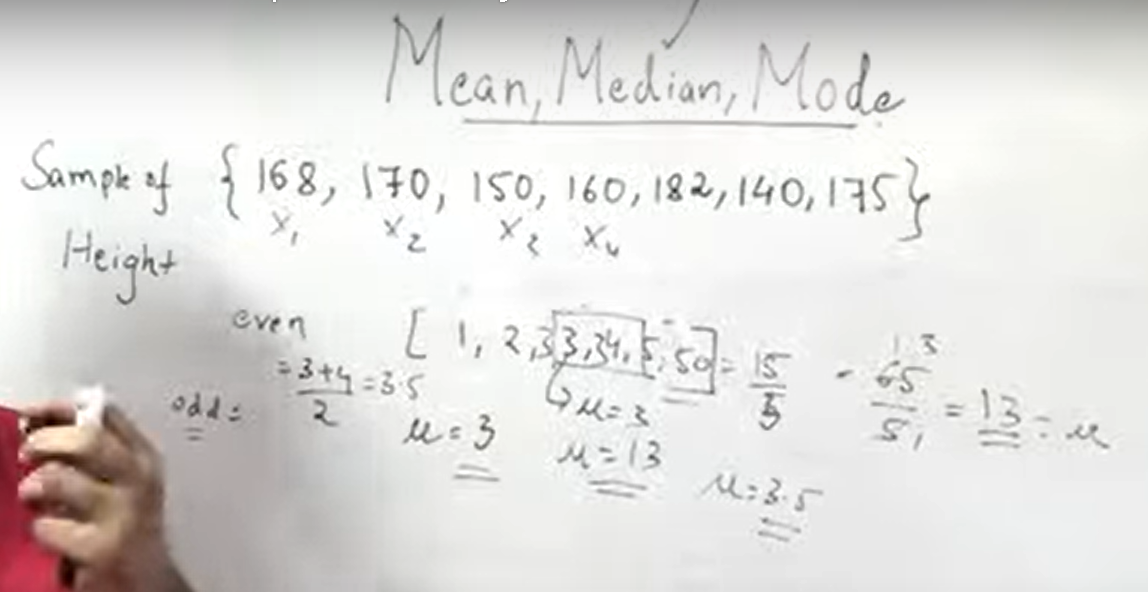 Mean, Median, Mode
Sample of { 168, 170, 150, 160, 182, 140, 175 }
Height
x₁ x₂ x₃ x₄
even [ 1, 2, 3 3, 34, 5, 50 ] = 15/5 - 65/5 = 13 = μ
= 3+4/2 = 3.5
odd =
μ = 3
μ = 3
μ = 13
μ = 3.5